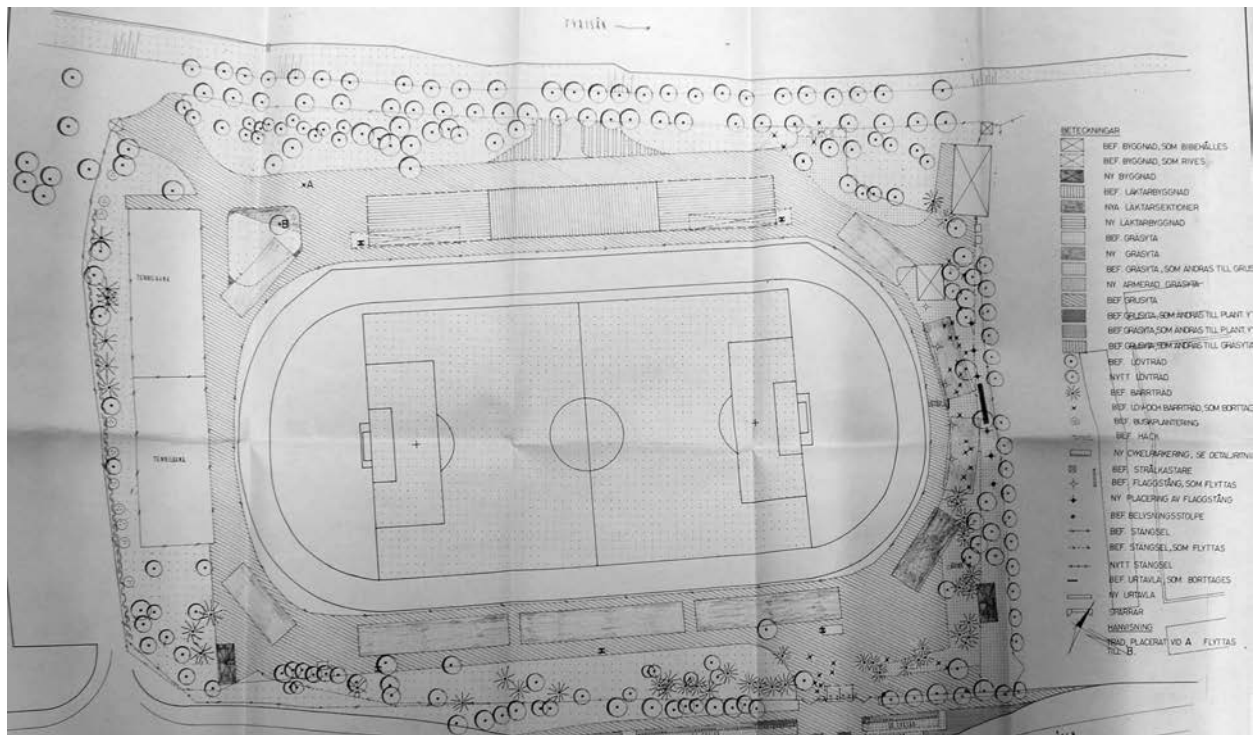 FYRISÅN
A
B
TENNISBANA
TENNISBANA
BETECKNINGAR
BEF. BYGGNAD, SOM BIBEHÅLLES
BEF. BYGGNAD, SOM RIVES
NY BYGGNAD
BEF. LÄKTARBYGGNAD
NYA LÄKTARSEKTIONER
NY LÄKTARBYGGNAD
BEF. GRÄSYTA
NY GRÄSYTA
BEF. GRÄSYTA, SOM ÄNDRAS TILL GRUS
NY ARMERAD GRÄSYTA
BEF. GRUSYTA
BEF. GRUSYTA, SOM ÄNDRAS TILL PLANT. Y
BEF. GRÄSYTA, SOM ÄNDRAS TILL PLANT. Y
BEF. GRUSYTA, SOM ÄNDRAS TILL GRÄSYTA
BEF. LÖVTRÄD
NYTT LÖVTRÄD
BEF. BARRTRÄD
BEF. LÖV-OCH BARRTRÄD, SOM BORTTAG
BEF. BUSKPLANTERING
BEF. HÄCK
NY CYKELPARKERING, SE DETALJRITN
BEF. STRÅLKASTARE
BEF. FLAGGSTÅNG, SOM FLYTTAS
NY PLACERING AV FLAGGSTÅNG
BEF. BELYSNINGSSTOLPE
BEF. STÄNGSEL
BEF. STÄNGSEL, SOM FLYTTAS
NYTT STÄNGSEL
BEF. URTAVLA, SOM BORTTAGES
NY URTAVLA
SPÄRRAR
HÄNVISNING
TRÄD, PLACERAT VID A FLYTTAS
TILL B.